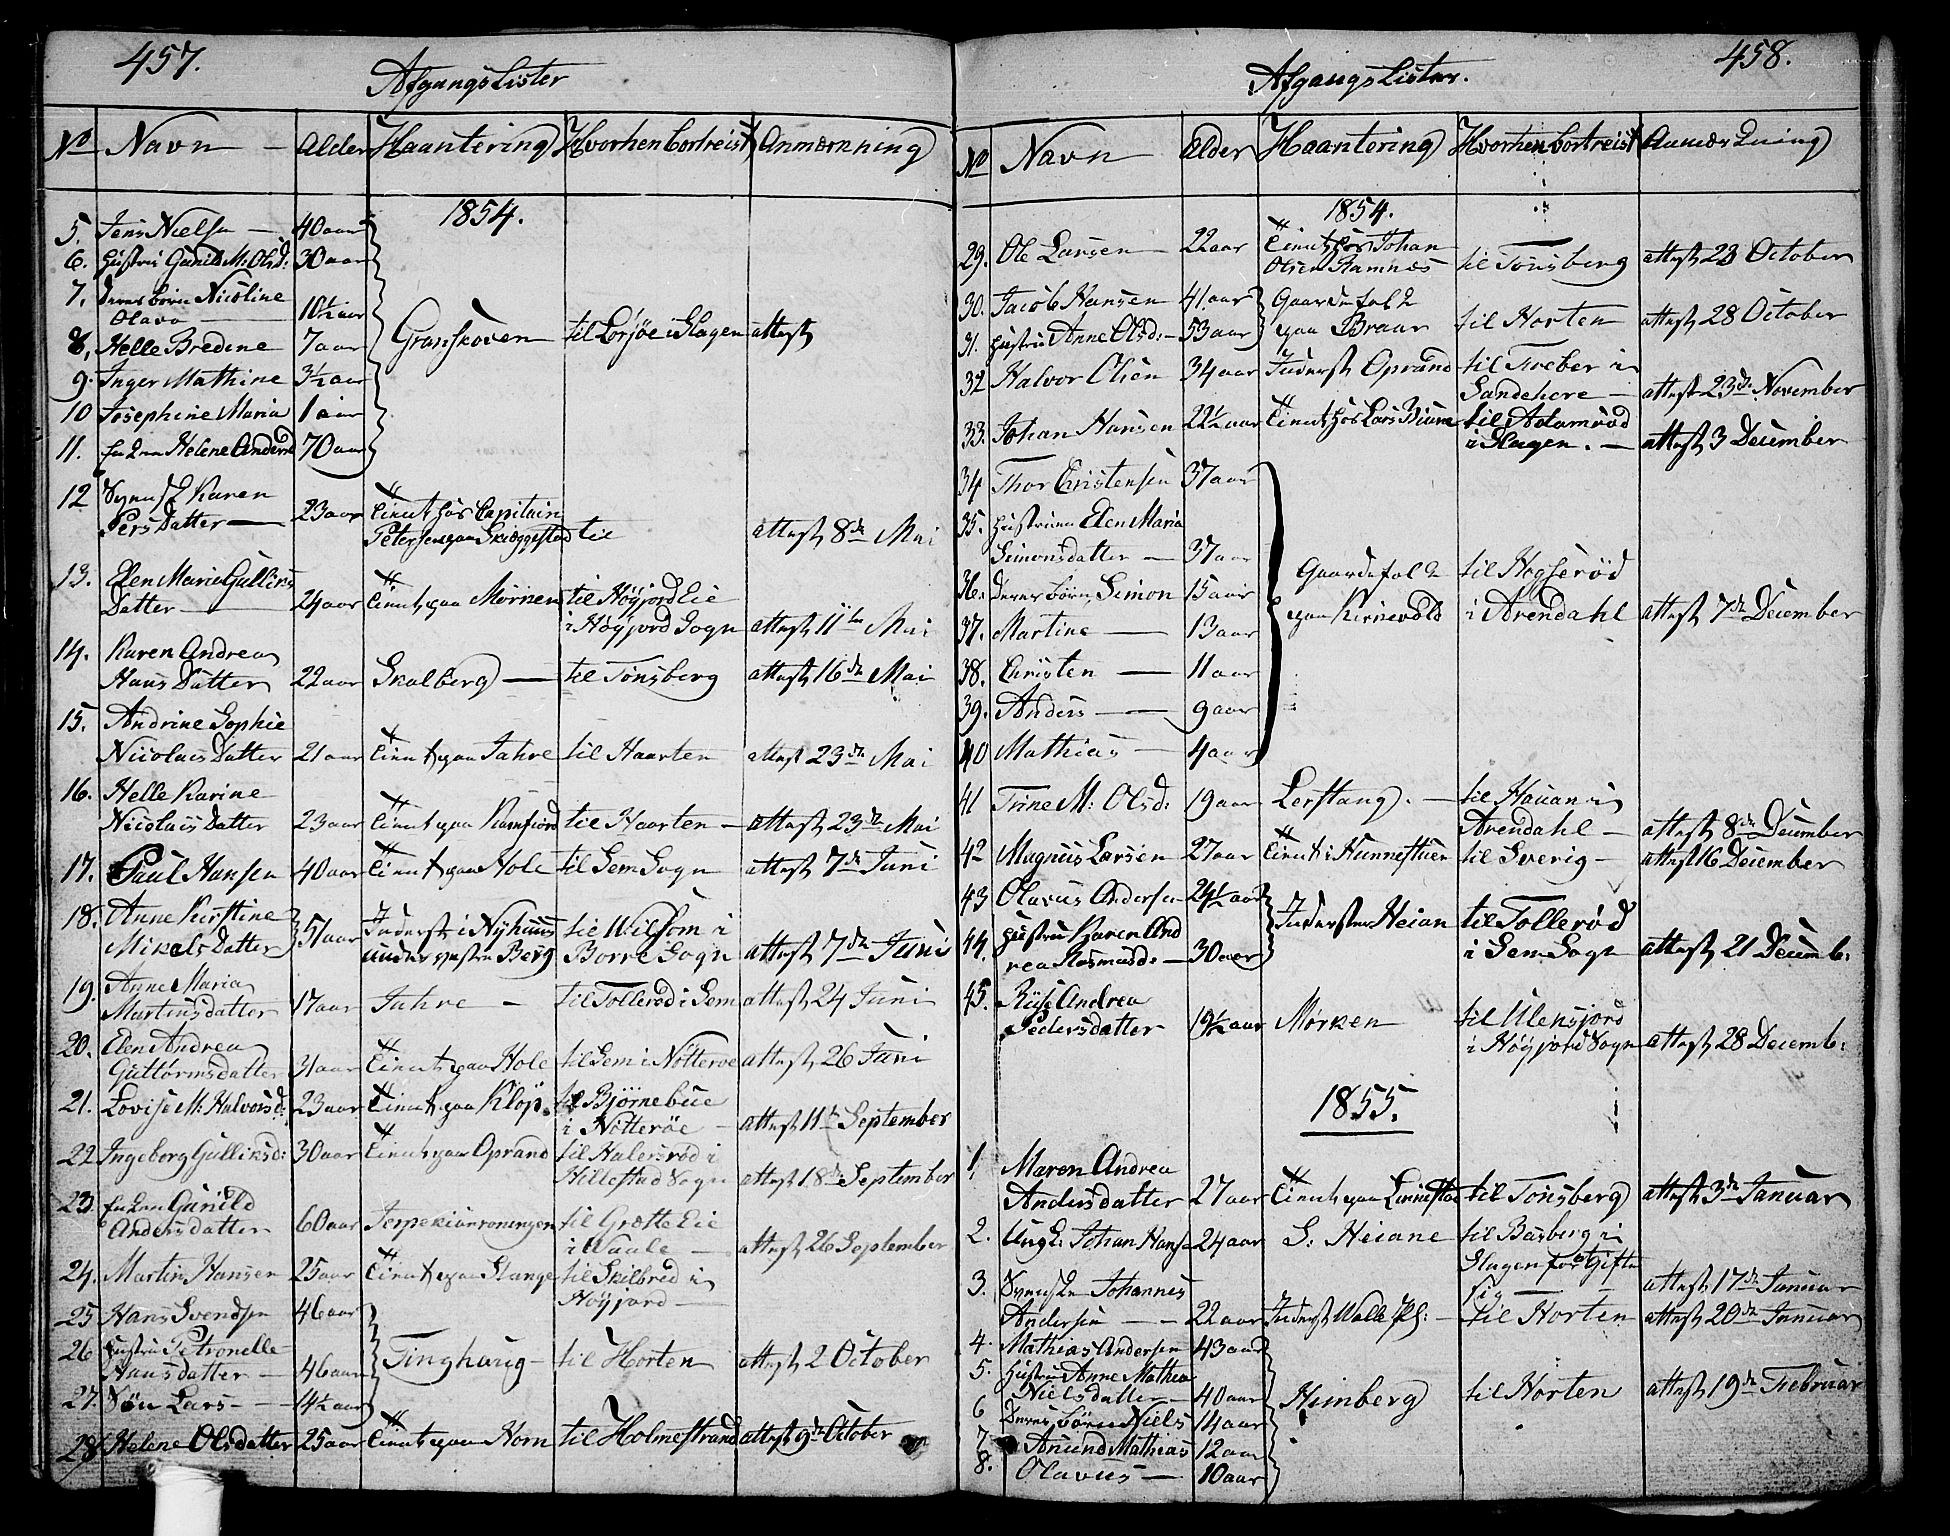 457.
Afgangs Lister
No Navn Alder Haantering Hvorhen bortreist Anmærkning
1854.
5. Jens Nielsen 40 aar
6. Hustru Gunild M. Olsd: 30 aar
7. Deres börn Nicoline
Olava 10½ aar
8. Helle Bredine 7 aar Granskoven til Lorsøe i Slagen attest
9. Inger Mathine 3½ aar
10 Josephine Maria 1 aar
11. Enken Helene Andersd 70 aar
12 Karen
Pers Datter 23 aar Tient hos Capitain
Petersen paa Skieggestad til attest 8de Mai
13. Elen Marie Gulliks
Datter 24 aar Tient paa Mörken til Höyjord Eie
i Höyjord Sogn attest 11te Mai
14. Karen Andrea
Hans Datter 22 aar Skalberg til Tönsberg attest 16de Mai
15. Andrine Sophie
Nicolais Datter 21 aar Tient paa Jahre til Haarten attest 23de Mai
16. Helle Karine
Nicolais Datter 23 aar Tient paa Ramfiord til Haarten attest 23de Mai
17. Paul Hansen 40 aar Tient paa Hole til Sem Sogn attest 7de Juni
18. Anne Kirstine
Mikals Datter 51 aar Inderst i Nyhuus
under vestre Berg til Wilsom i
Borre Sogn attest 7de Juni
19. Anne Maria
Martinsdatter 17 aar Jahre til Tolleröd i Sem attest 24 Juni
20. Elen Andrea
Guttormsdatter 31 aar Tient paa Hole til Sem i Nötteröe attest 26 Juni
21. Lovise M. Halvorsd: 23 aar Tient paa Klöp. til Björnebue
i Nötteröe attest 11te September
22 Ingeborg Gulliksd: 30 aar Tient paa Oprand til Halersröd i
Hillestad Sogn attest 18de September
23. Enken Gunild
Andersdatter 60 aar Jerpekiönroningen til Grette Eie
i Waale attest 26 September
24. Martin Hansen 25 aar Tient paa Stange til Skilbred i
Höyjord
25 Hans Svendsen 46 aar
26 Hustru Petronelle
Hansdatter 46 aar Tinghaug til Horten attest 2 October
27. Sön Lars 14½ aar
28 Helene Olsdatter 25 aar Tient paa Horn til Holmestrand attest 9de October
458.
Afgangs Lister.
No Navn Alder Haantering Hvorhen bortreist Anmærkning
1854.
29. Ole Larsen 22 aar Tient hos Johan
Olsen Ramnæs til Tönsberg attest 23 October
30. Jacob Hansen 41 aar Gaardefolk
31. Hustru Anne Olsd: 53 aar paa Braar til Horten attest 28 October
32 Halvor Olsen 34 aar Inderst Oprand til Treber i
Sandehere attest 23de November
33. Johan Hansen 22½ aar Tient hos Lars til Adamröd
i Slagen. attest 3 December
34 Thor Christensen 37 aar
35. Hustruen Elen Maria
Simonsdatter 37 aar
36. Deres börn, Simon 15 aar Gaardefolk til Hogseröd
37. Martine 13 aar paa Kirkevold i Arendahl attest 7de December
38. Christen 11 aar
39. Anders 9 aar
40 Mathias 4 aar
41 Trine M: Olsd: 19 aar Lerstang. til Hauan i
Arendahl attest 8de December
42 Magnus Larsen 27 aar Tient i Hunnestuen til Sverig attest 16 December
43 Olavus Andersen 24½ aar Inderster Heian til Tolleröd
44. Hustru Karen And
rea Rasmusd: 30 aar i Sem Sogn attest 21 Decemb:
45. Andrea
Pedersdatter 19½ aar Mörken til Ulensjord
i Höyjord Sogn attest 28 Decemb:
1855.
1, Maren Andrea
Andersdatter 27 aar Tient paa Linnestad til Tönsberg attest 3de Januar
2. Ungk: Johan Hansen 24 aar S: Heiane til Basberg i
Slagen for Gifte
sig attest 17de Januar
3. Johannes
Andersen 22 aar Inderst Walle Pl: til Horten attest 20de Januar
4. Mathias Andersen 43 aar
5. Hustru Anne Mathea
Nielsdatter 40 aar Himberg til Horten attest 19de Februar
6 Deres börn Niels 14 aar
7 Amund Mathias 12 aar
8. Olavus 10 aar